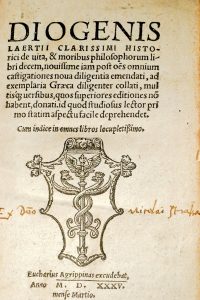 DIOGENIS
LAERTII CLARISSIMI HISTO-
rici de uita, & moribus philosophorum li-
bri decem, nouissime iam post oẽs omnium
castigationes noua diligentia emendati, ad
exemplaria Græca diligenter collati, mul-
tisq; versibus, quos superiores editiones nõ
habent, donati. id quod studiosus lector pri
mo statim aspectu facile deprehendet.
Cum indice in omnes libros locupletissimo.
Ex Dõno Nicolai
Eucharius Agrippinas excudebat,
Anno M. D. XXXV.
mense Martio.